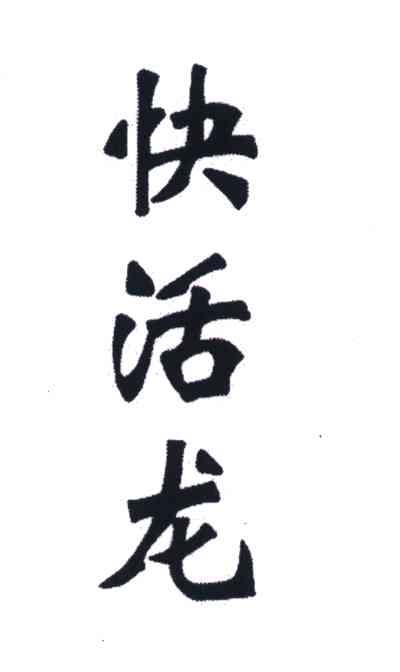 快活龙